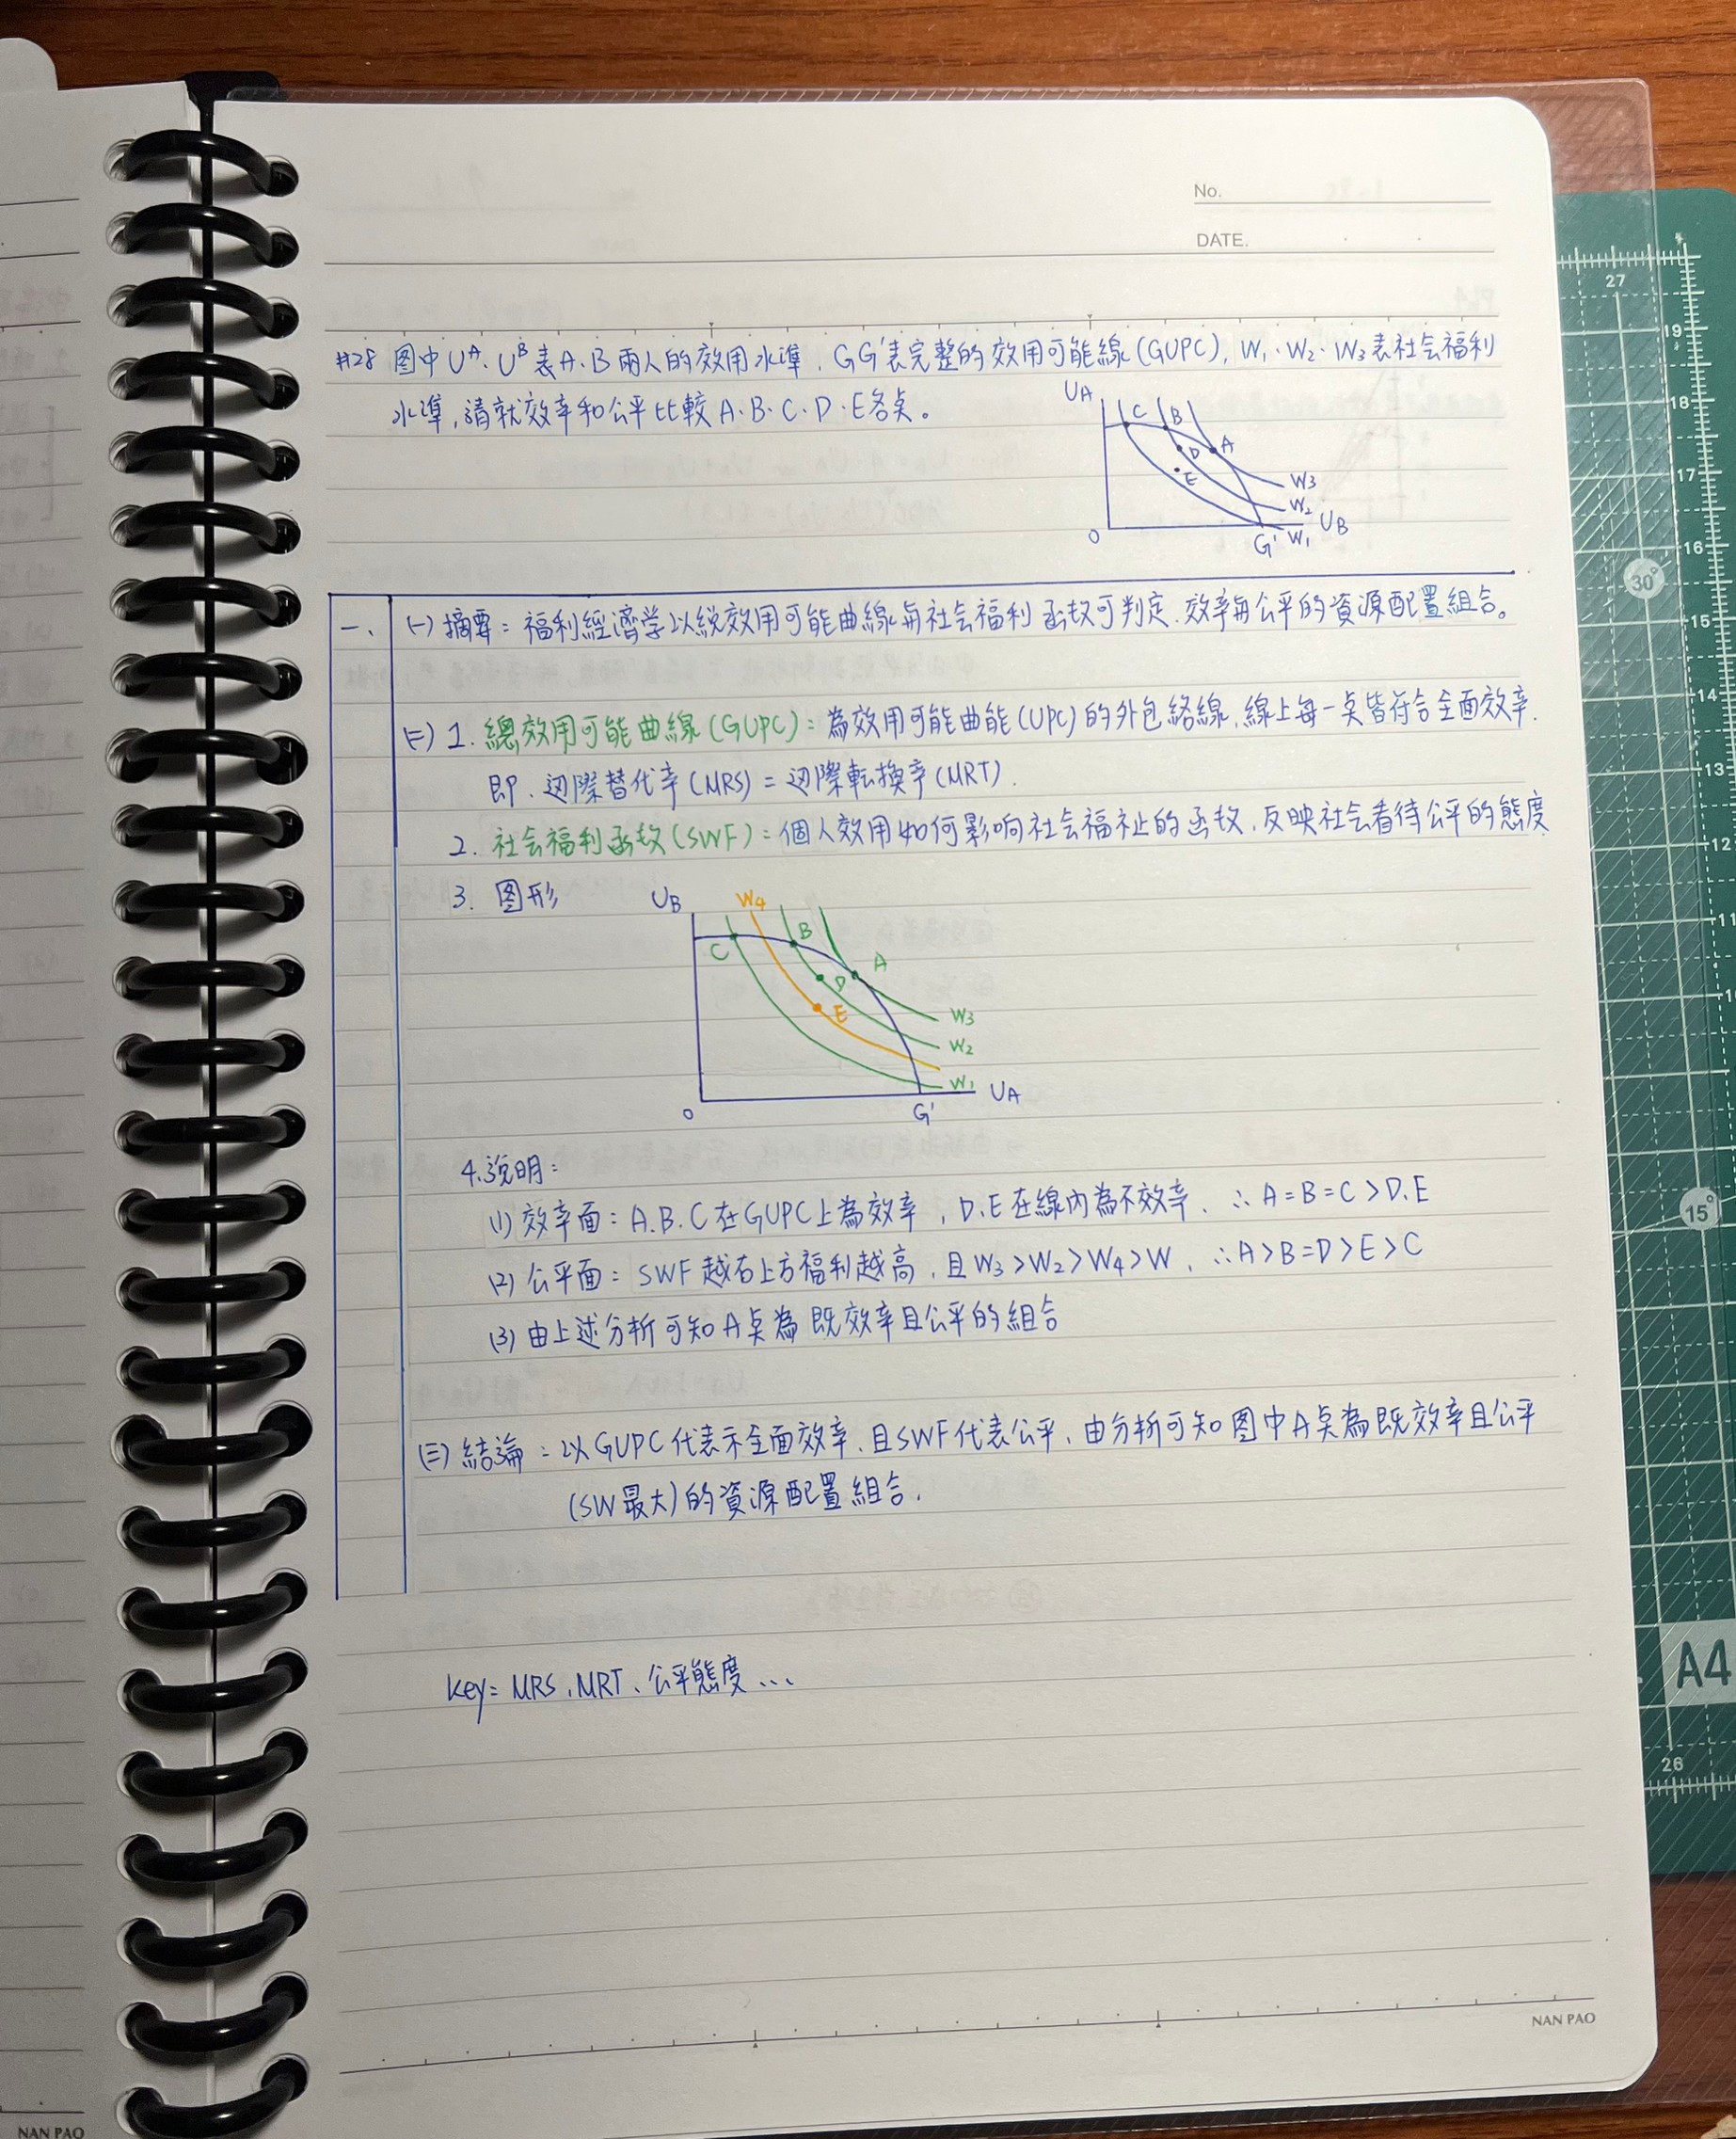 No.
DATE.
#28 图中 U^A、U^B 表A、B 兩人的效用水準，GG'表完整的效用可能線(GUPC)，W₁、W₂、W₃表社会福利
水準，請就效率和公平比較A、B、C、D、E各点。
UA
C
B
A
D
E
W3
W2
W1
UB
O
G'
一、
(一) 摘要：福利經濟学以総效用可能曲線与社会福利函数可判定、效率与公平的資源配置組合。
(二) 1. 總效用可能曲線(GUPC)：為效用可能曲能(UPC)的外包絡線，線上每一点皆符合全面效率、
即、边際替代率(MRS) = 边際転換率(MRT).
2. 社会福利函数(SWF)：個人效用如何影响社会福祉的函数、反映社会看待公平的態度
3. 图形
UB
W4
C
B
A
D
E
W3
W2
W1
O
G'
UA
4.説明：
(1) 效率面：A.B.C在GUPC上為效率，D.E在線內為不效率、∴A=B=C>D.E
(2) 公平面：SWF越右上方福利越高，且W₃>W₂>W₄>W、∴A>B=D>E>C
(3) 由上述分析可知A点為既效率且公平的組合
(三) 結論：以GUPC代表示全面效率、且SWF代表公平、由分析可知图中A点為既效率且公平
(SW最大)的資源配置組合.
key= MRS、MRT、公平態度…
NAN PAO
NAN PAO
27
19
18
17
16
30°
15
14
13
12
11
15°
A4
26